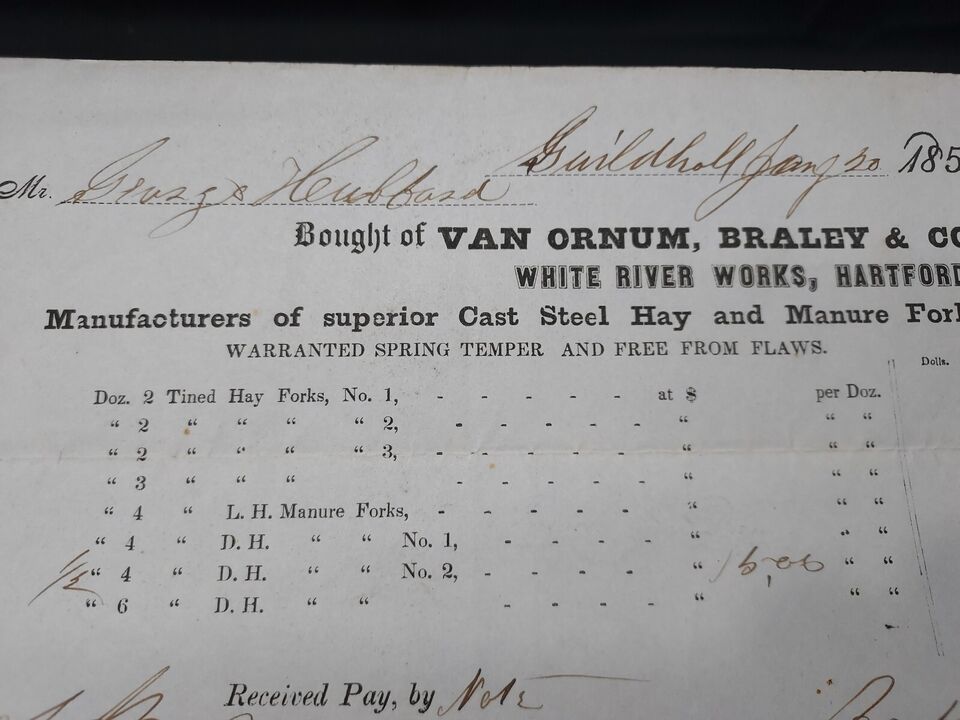 Guildhall Jany 20 185
Mr. George Hubbard
Bought of VAN ORNUM, BRALEY & CO
WHITE RIVER WORKS, HARTFORD
Manufacturers of superior Cast Steel Hay and Manure Fork
WARRANTED SPRING TEMPER AND FREE FROM FLAWS.
Dolls.
Doz. 2 Tined Hay Forks, No. 1, - - - - - at $ per Doz.
“ 2 “ “ “ “ 2, - - - - - “ “ “
“ 2 “ “ “ “ 3, - - - - - “ “ “
“ 3 “ “ “ - - - - - “ “ “
“ 4 “ L. H. Manure Forks, - - - - - “ “ “
“ 4 “ D. H. “ “ No. 1, - - - - “ “ “
1/2 “ 4 “ D. H. “ “ No. 2, - - - - “ 15,00 “ “
“ 6 “ D. H. “ “ - - - - “ “ “
Received Pay, by Note